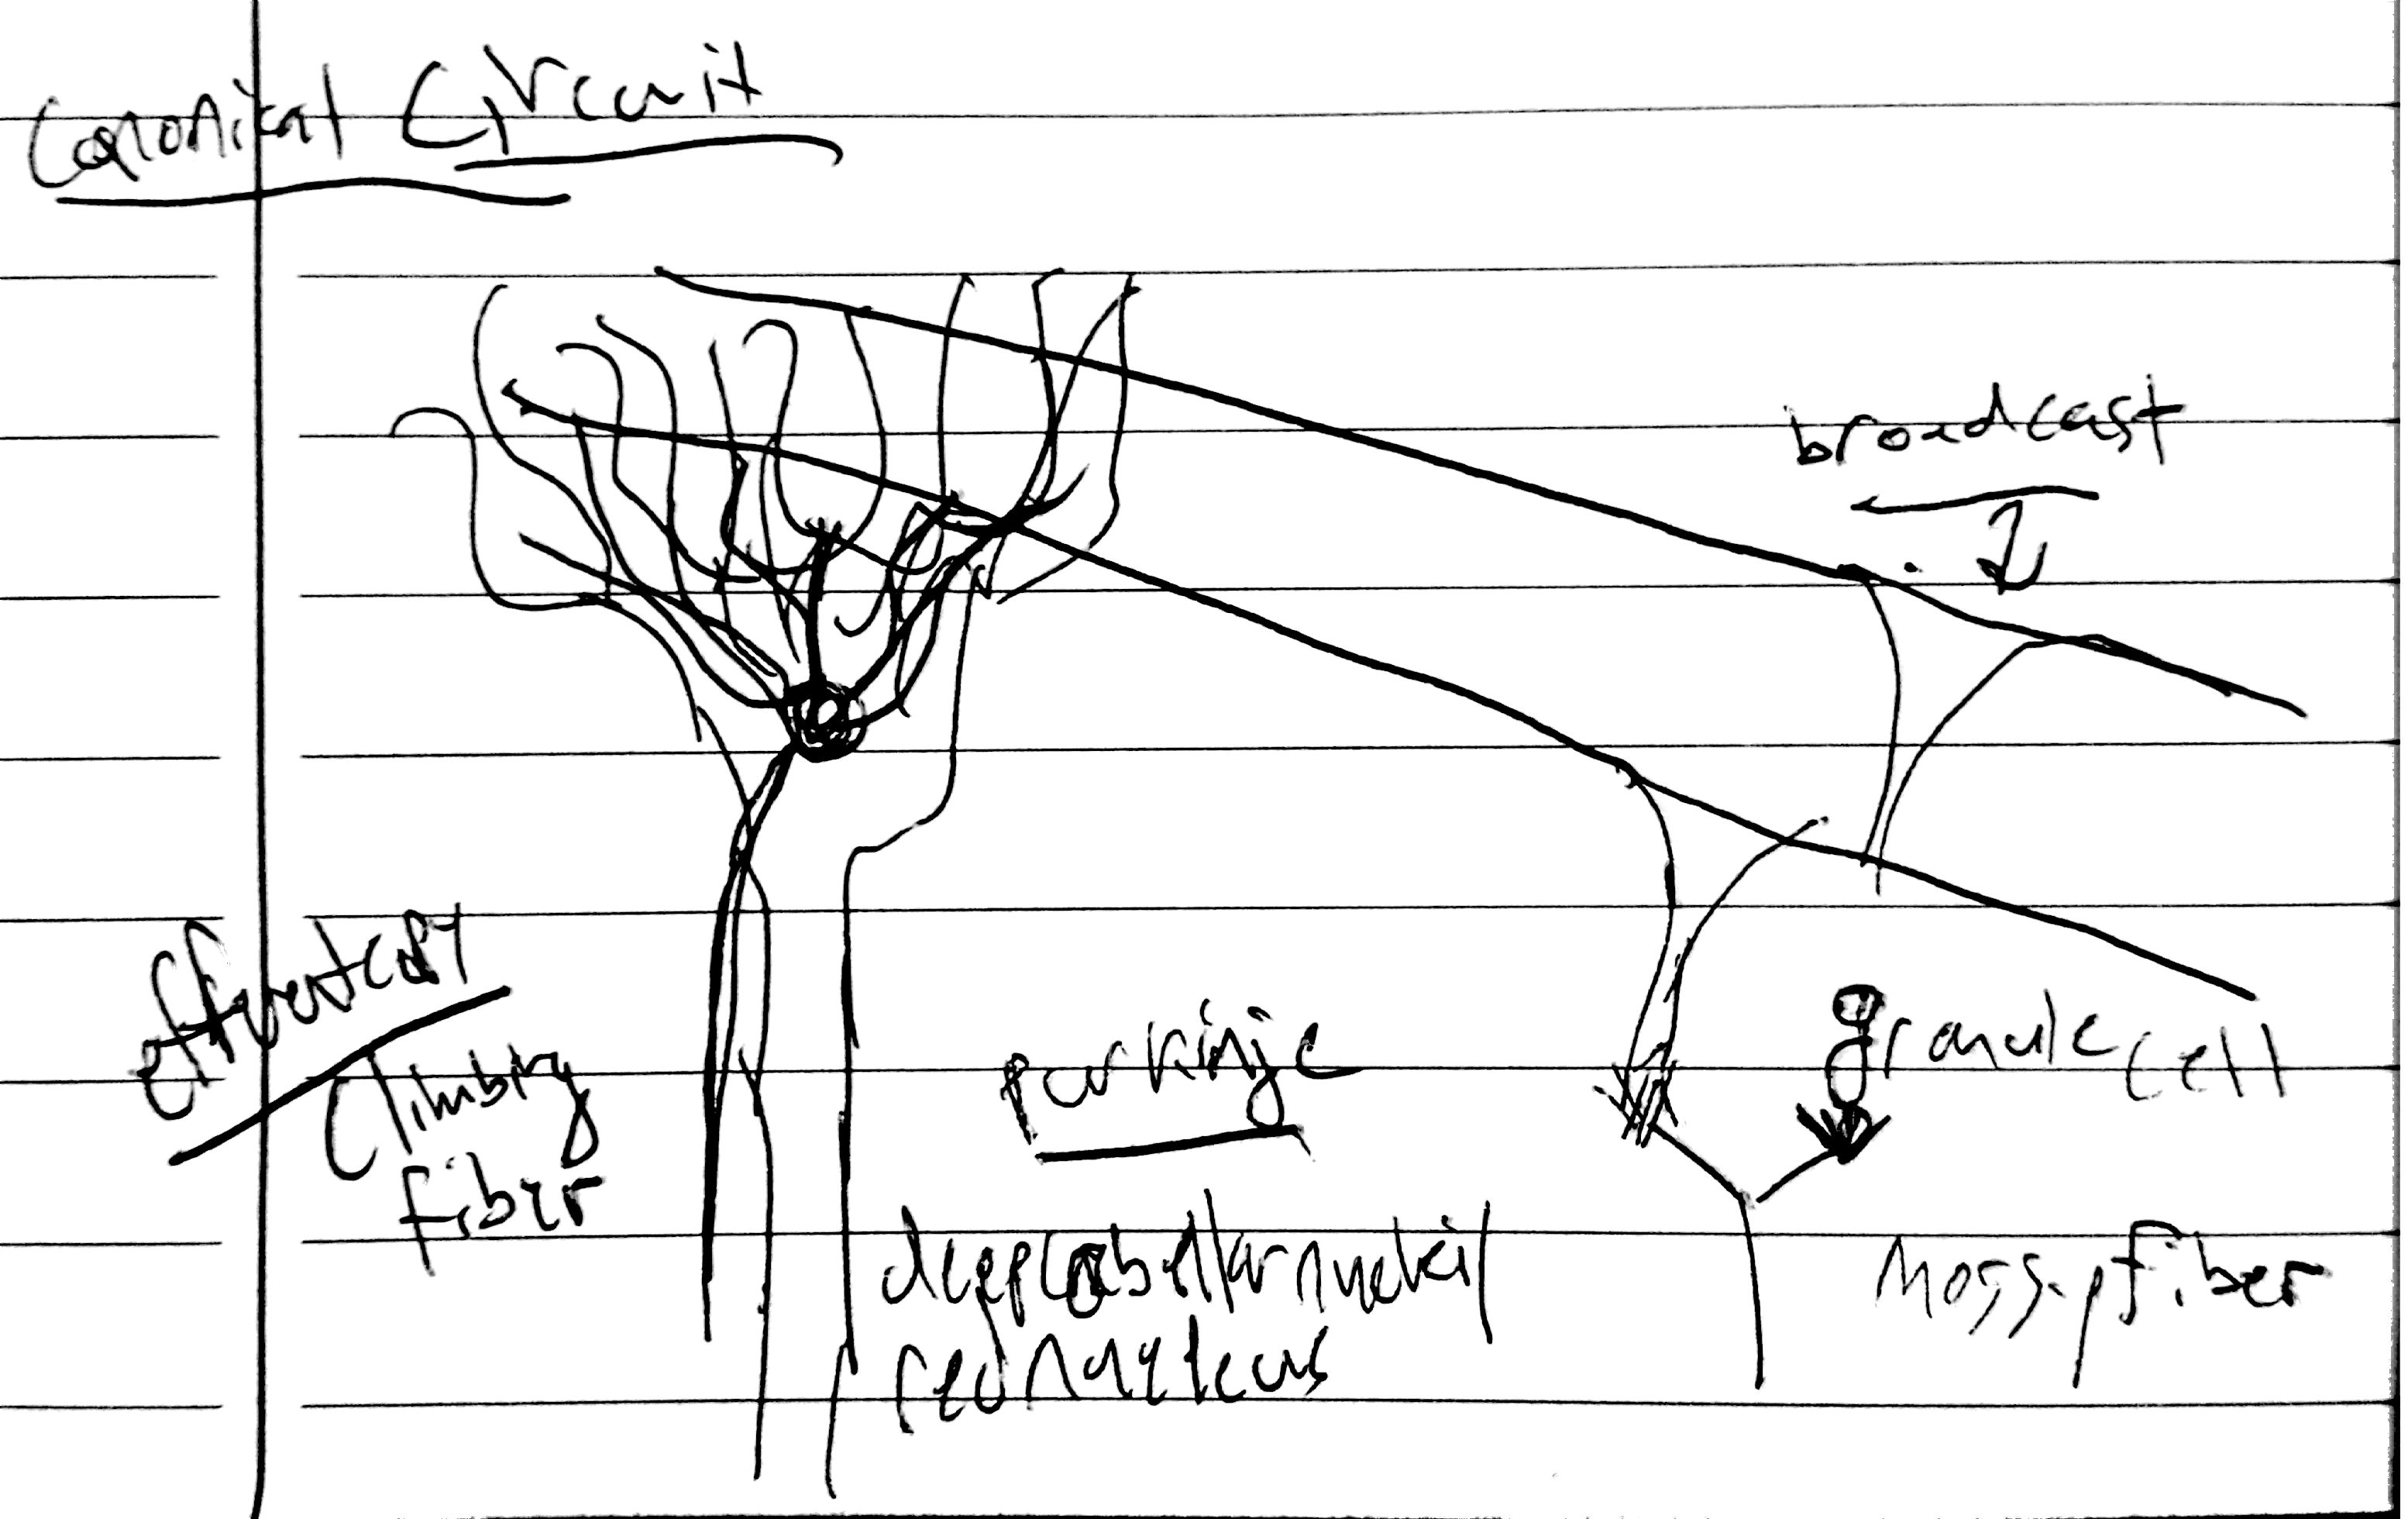 Canonical Circuit
broadcast
efferent copy
Climbing
fiber
purkinje
granule cell
deep cerebellar nuclei
red nucleus
Mossy fiber